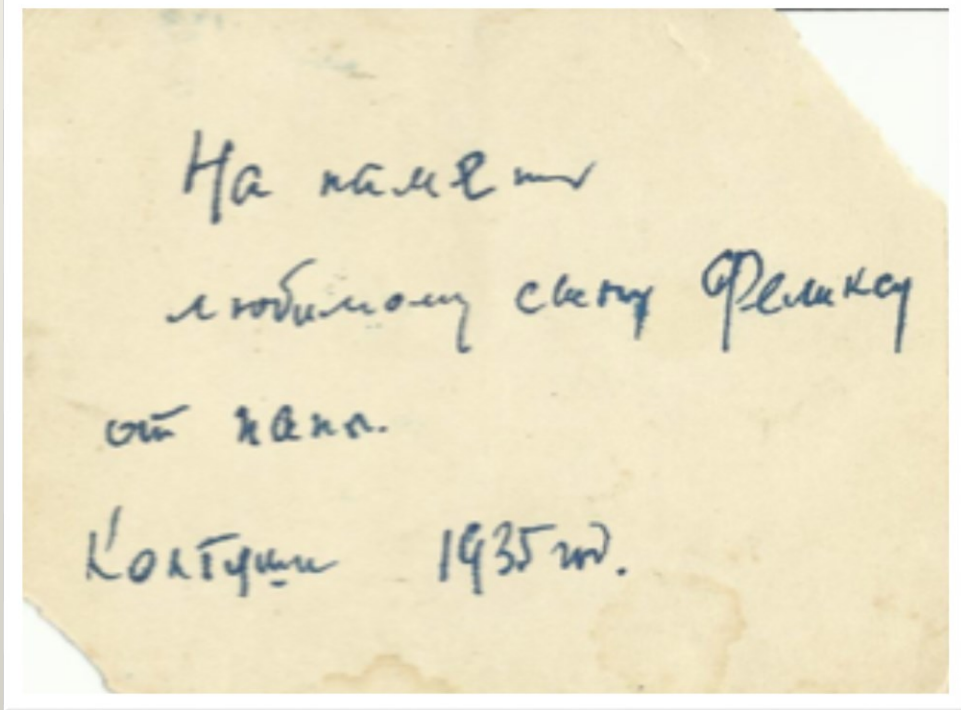 На память
любимому сыну Феликсу
от папы.
Колтуши 1935 год.